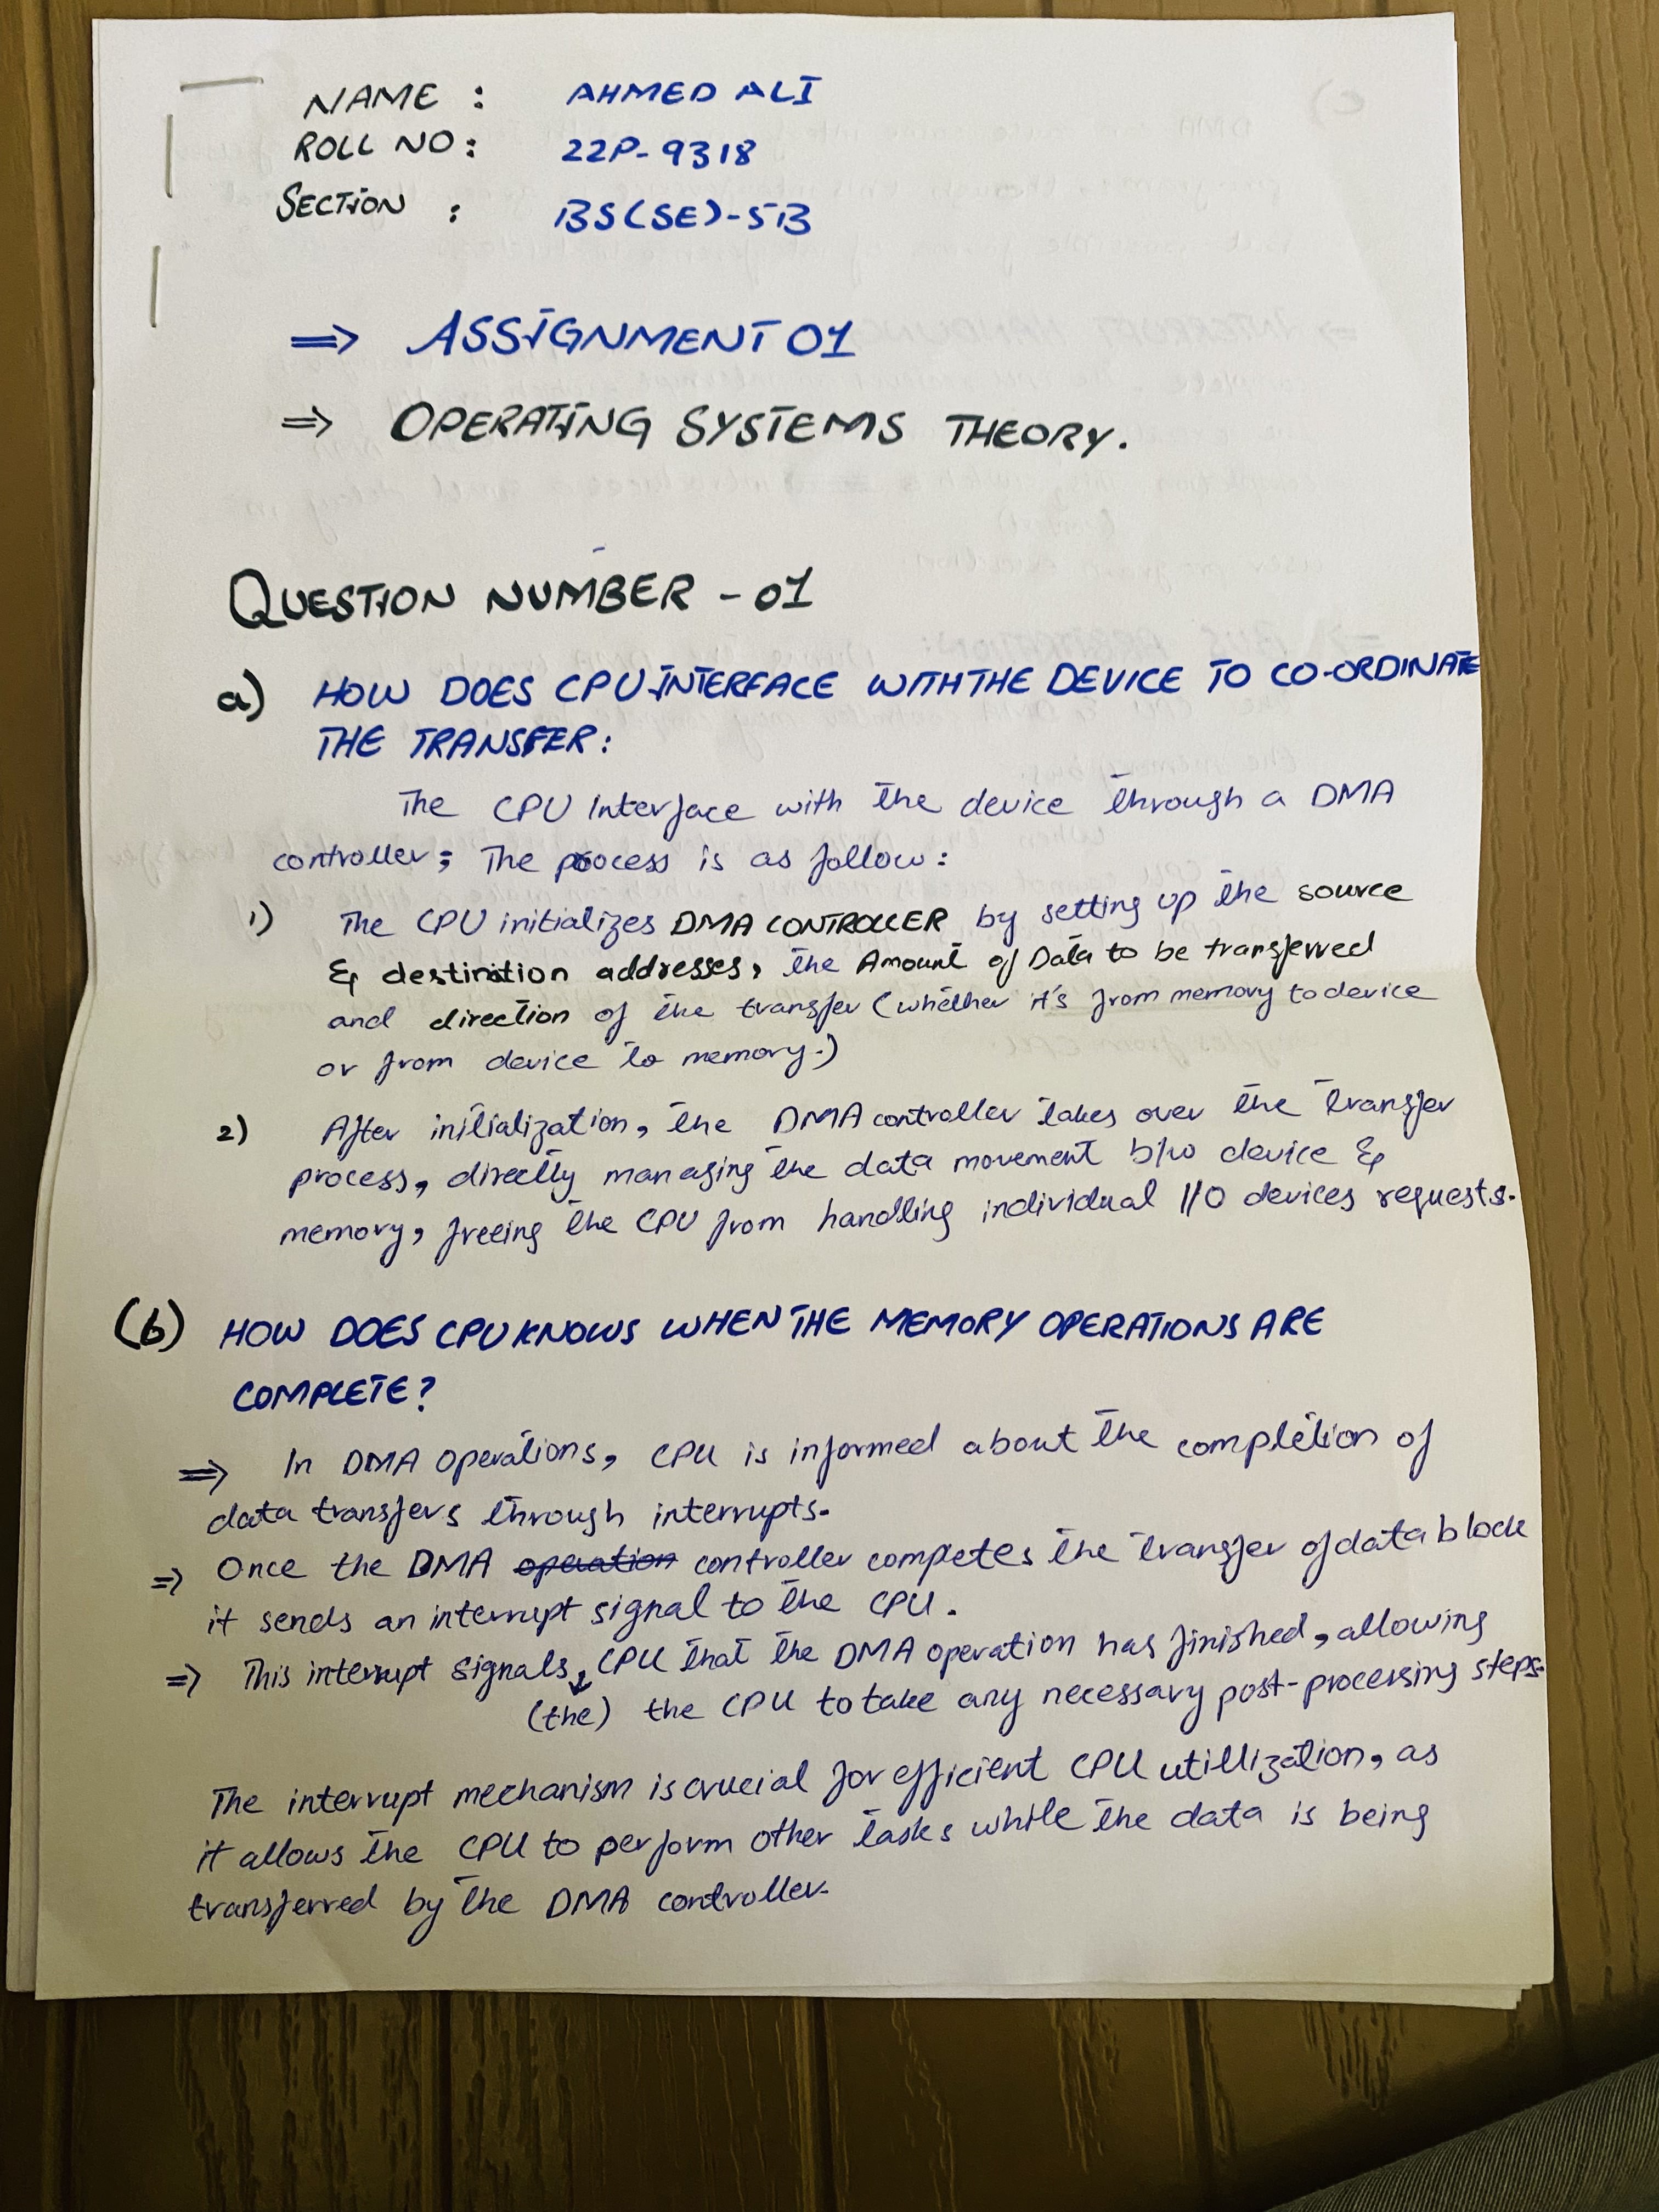 NAME : AHMED ALI
ROLL NO : 22P-9318
SECTION : BS(SE)-5B
⇒ ASSIGNMENT 01
⇒ OPERATING SYSTEMS THEORY.
QUESTION NUMBER - 01
a) HOW DOES CPU INTERFACE WITH THE DEVICE TO CO-ORDINATE
THE TRANSFER:
The CPU Interface with the device through a DMA
controller; The process is as follow:
1) The CPU initializes DMA CONTROLLER by setting up the source
& destination addresses, the Amount of Data to be transferred
and direction of the transfer (whether it's from memory to device
or from device to memory.)
2) After initialization, the DMA controller takes over the transfer
process, directly managing the data movement b/w device &
memory, freeing the CPU from handling individual I/O devices requests.
(b) HOW DOES CPU KNOWS WHEN THE MEMORY OPERATIONS ARE
COMPLETE?
⇒ In DMA operations, CPU is informed about the completion of
data transfers through interrupts.
⇒ Once the DMA operation controller competes the transfer of data block
it sends an interrupt signal to the CPU.
⇒ This interrupt signals, CPU that the DMA operation has finished, allowing
(the) the CPU to take any necessary post-processing steps.
The interrupt mechanism is crucial for efficient CPU utillization, as
it allows the CPU to perform other tasks while the data is being
transferred by the DMA controller.